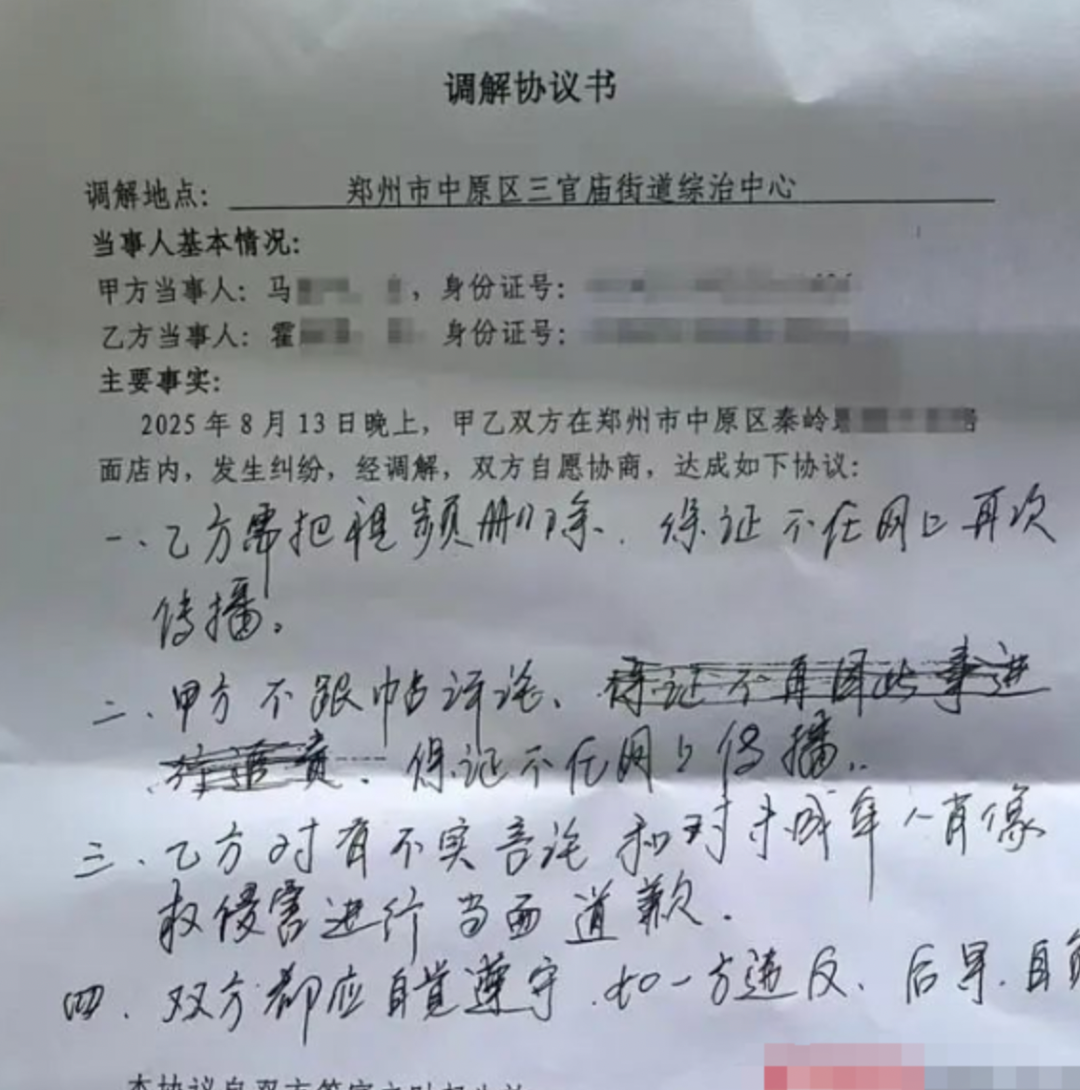 调解协议书
调解地点： 郑州市中原区三官庙街道综治中心
当事人基本情况：
甲方当事人：马 ，身份证号：
乙方当事人：霍 身份证号：
主要事实：
2025年8月13日晚上，甲乙双方在郑州市中原区秦岭
面店内，发生纠纷，经调解，双方自愿协商，达成如下协议：
一、乙方需把视频删除、保证不在网上再次
传播。
二、甲方不跟帖评论、保证不再因此事进
行追责、保证不在网上传播。
三、乙方对有不实言论和对未成年人肖像
权侵害进行当面道歉。
四、双方都应自觉遵守、如一方违反、后果自负
本协议自双方签字之时起生效